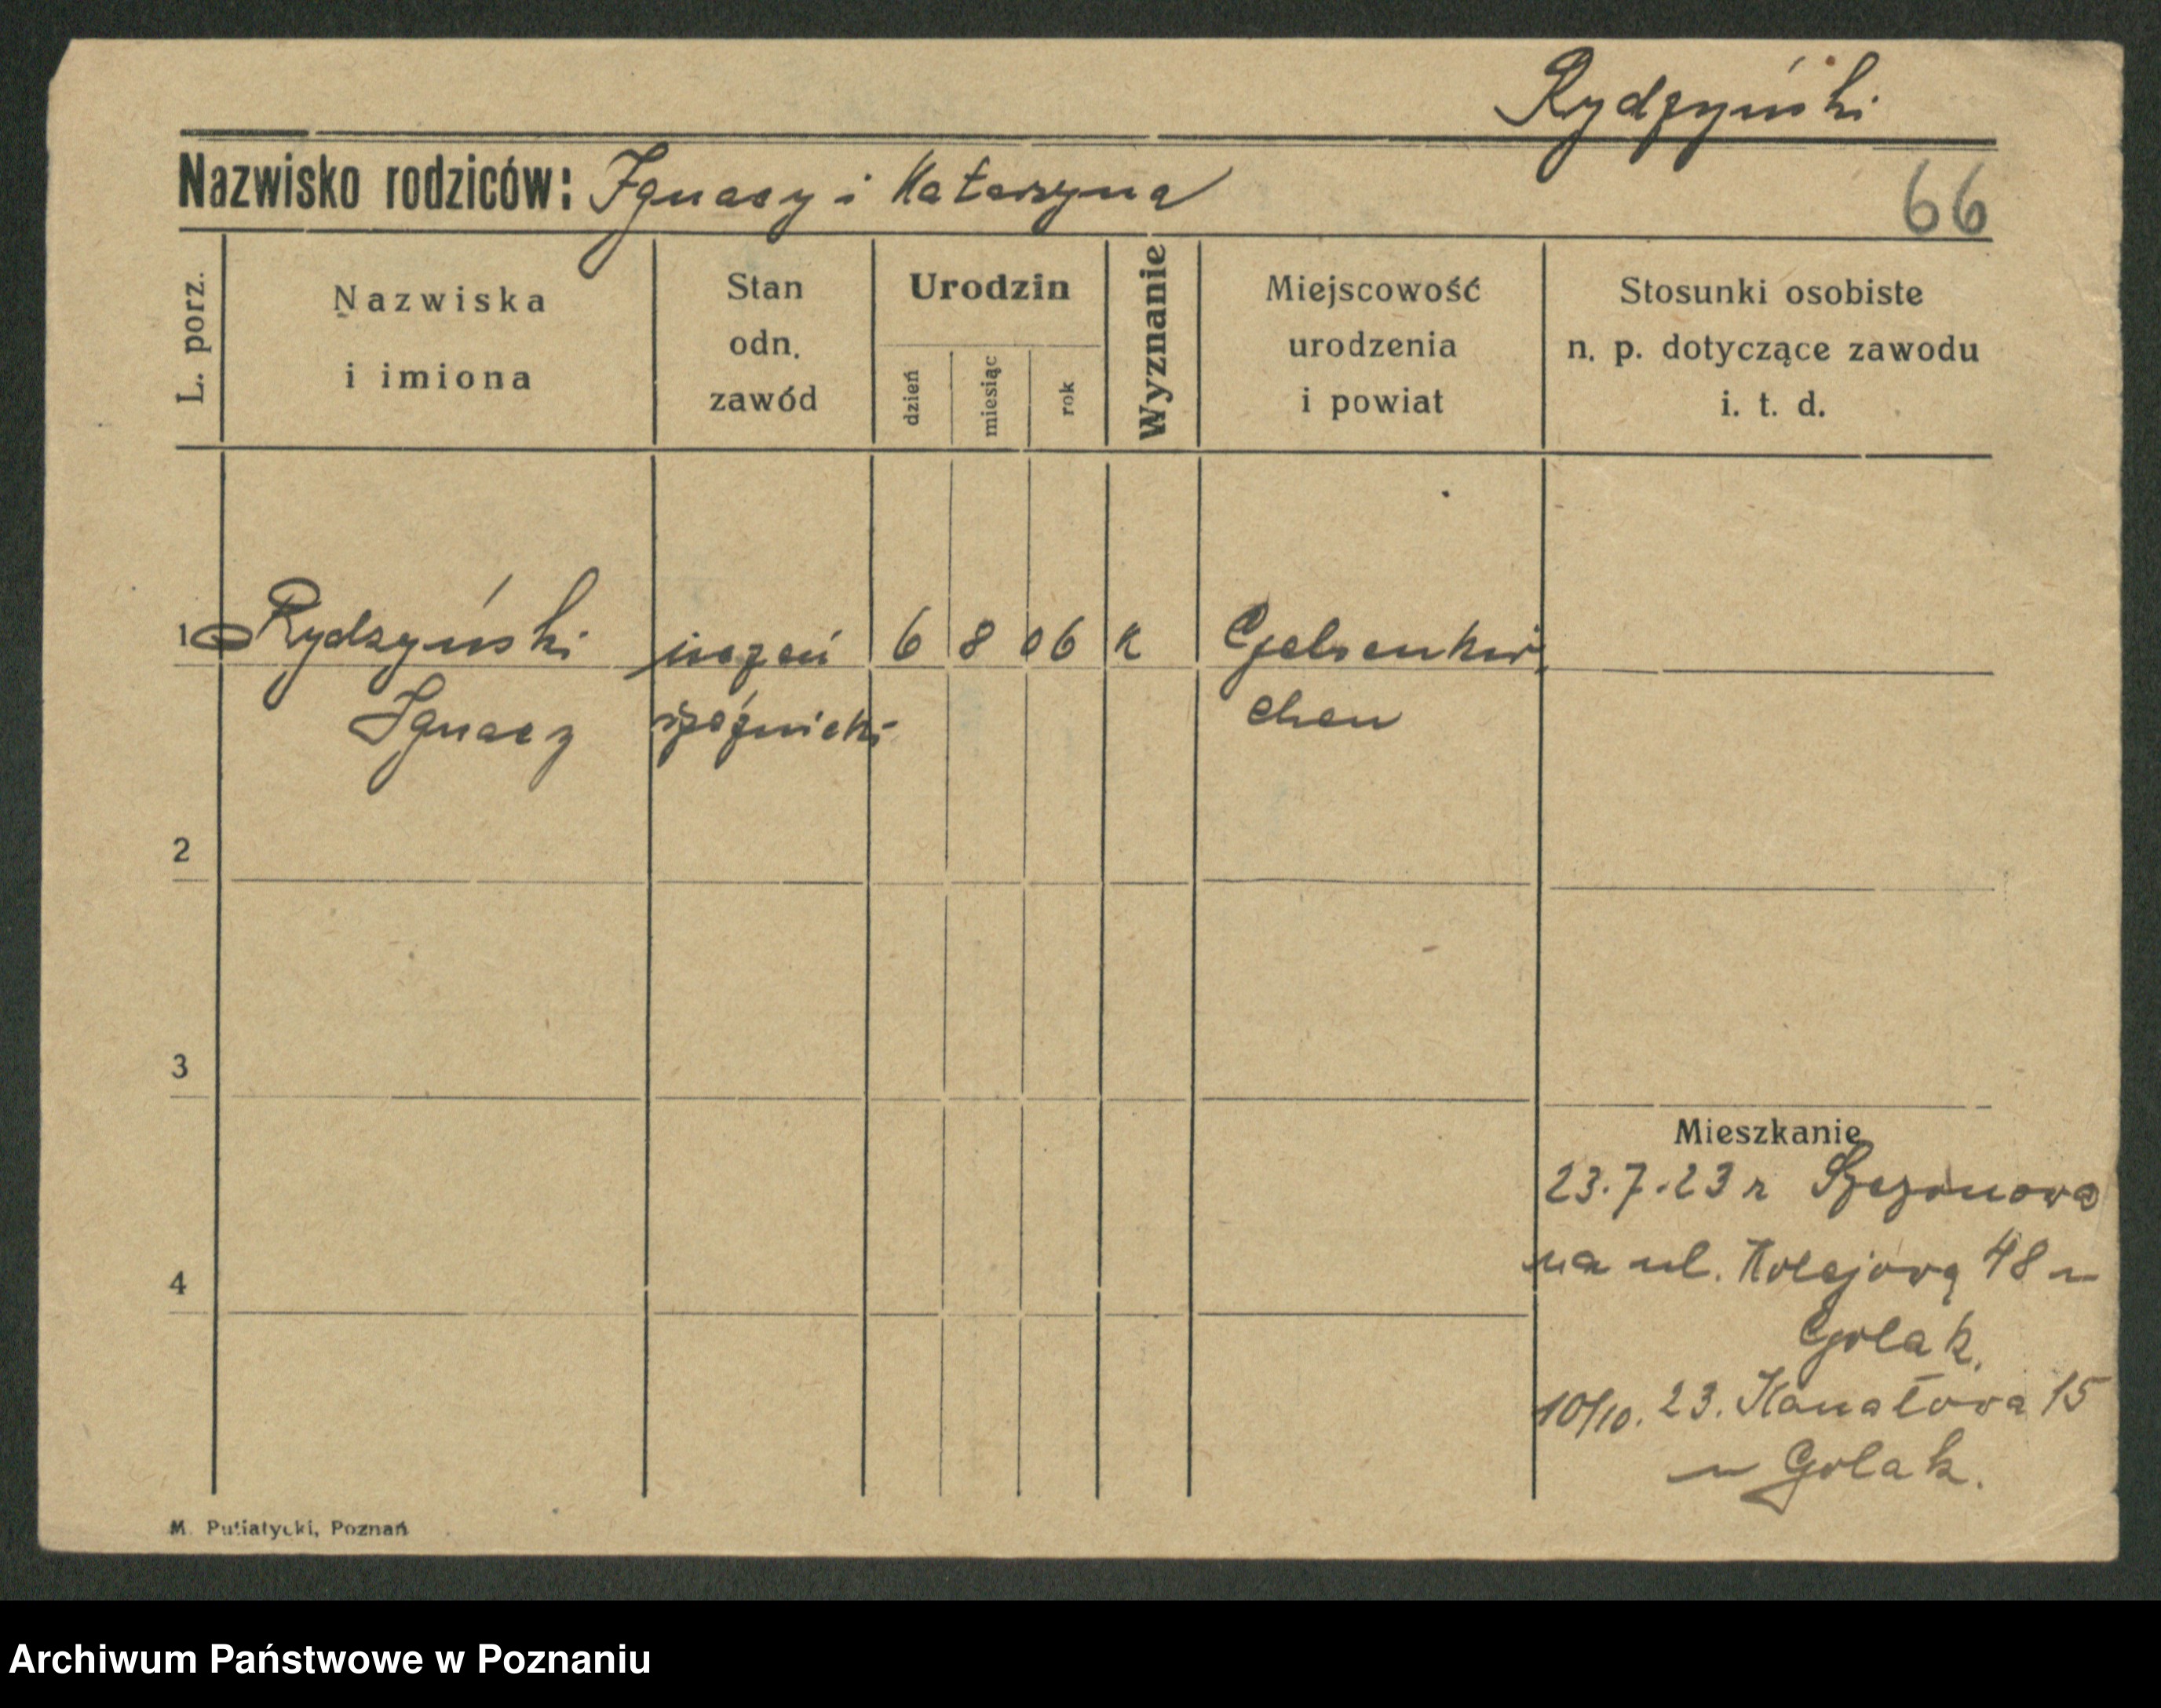 Rydzyński
Nazwisko rodziców: Ignacy i Katarzyna
66
L. porz.
Nazwiska
i imiona
Stan
odn.
zawód
Urodzin
dzień
miesiąc
rok
Wyznanie
Miejscowość
urodzenia
i powiat
Stosunki osobiste
n. p. dotyczące zawodu
i. t. d.
1 Rydzyński uczeń 6 8 06 k Gelsenkir
Ignacy chen
2
3
4
Mieszkanie
23.7.23 r
na ul. Kolejową 48 u
Golak.
10/10. 23. Kanałova 15
u Golak.
M. Putiatycki, Poznań
Archiwum Państwowe w Poznaniu